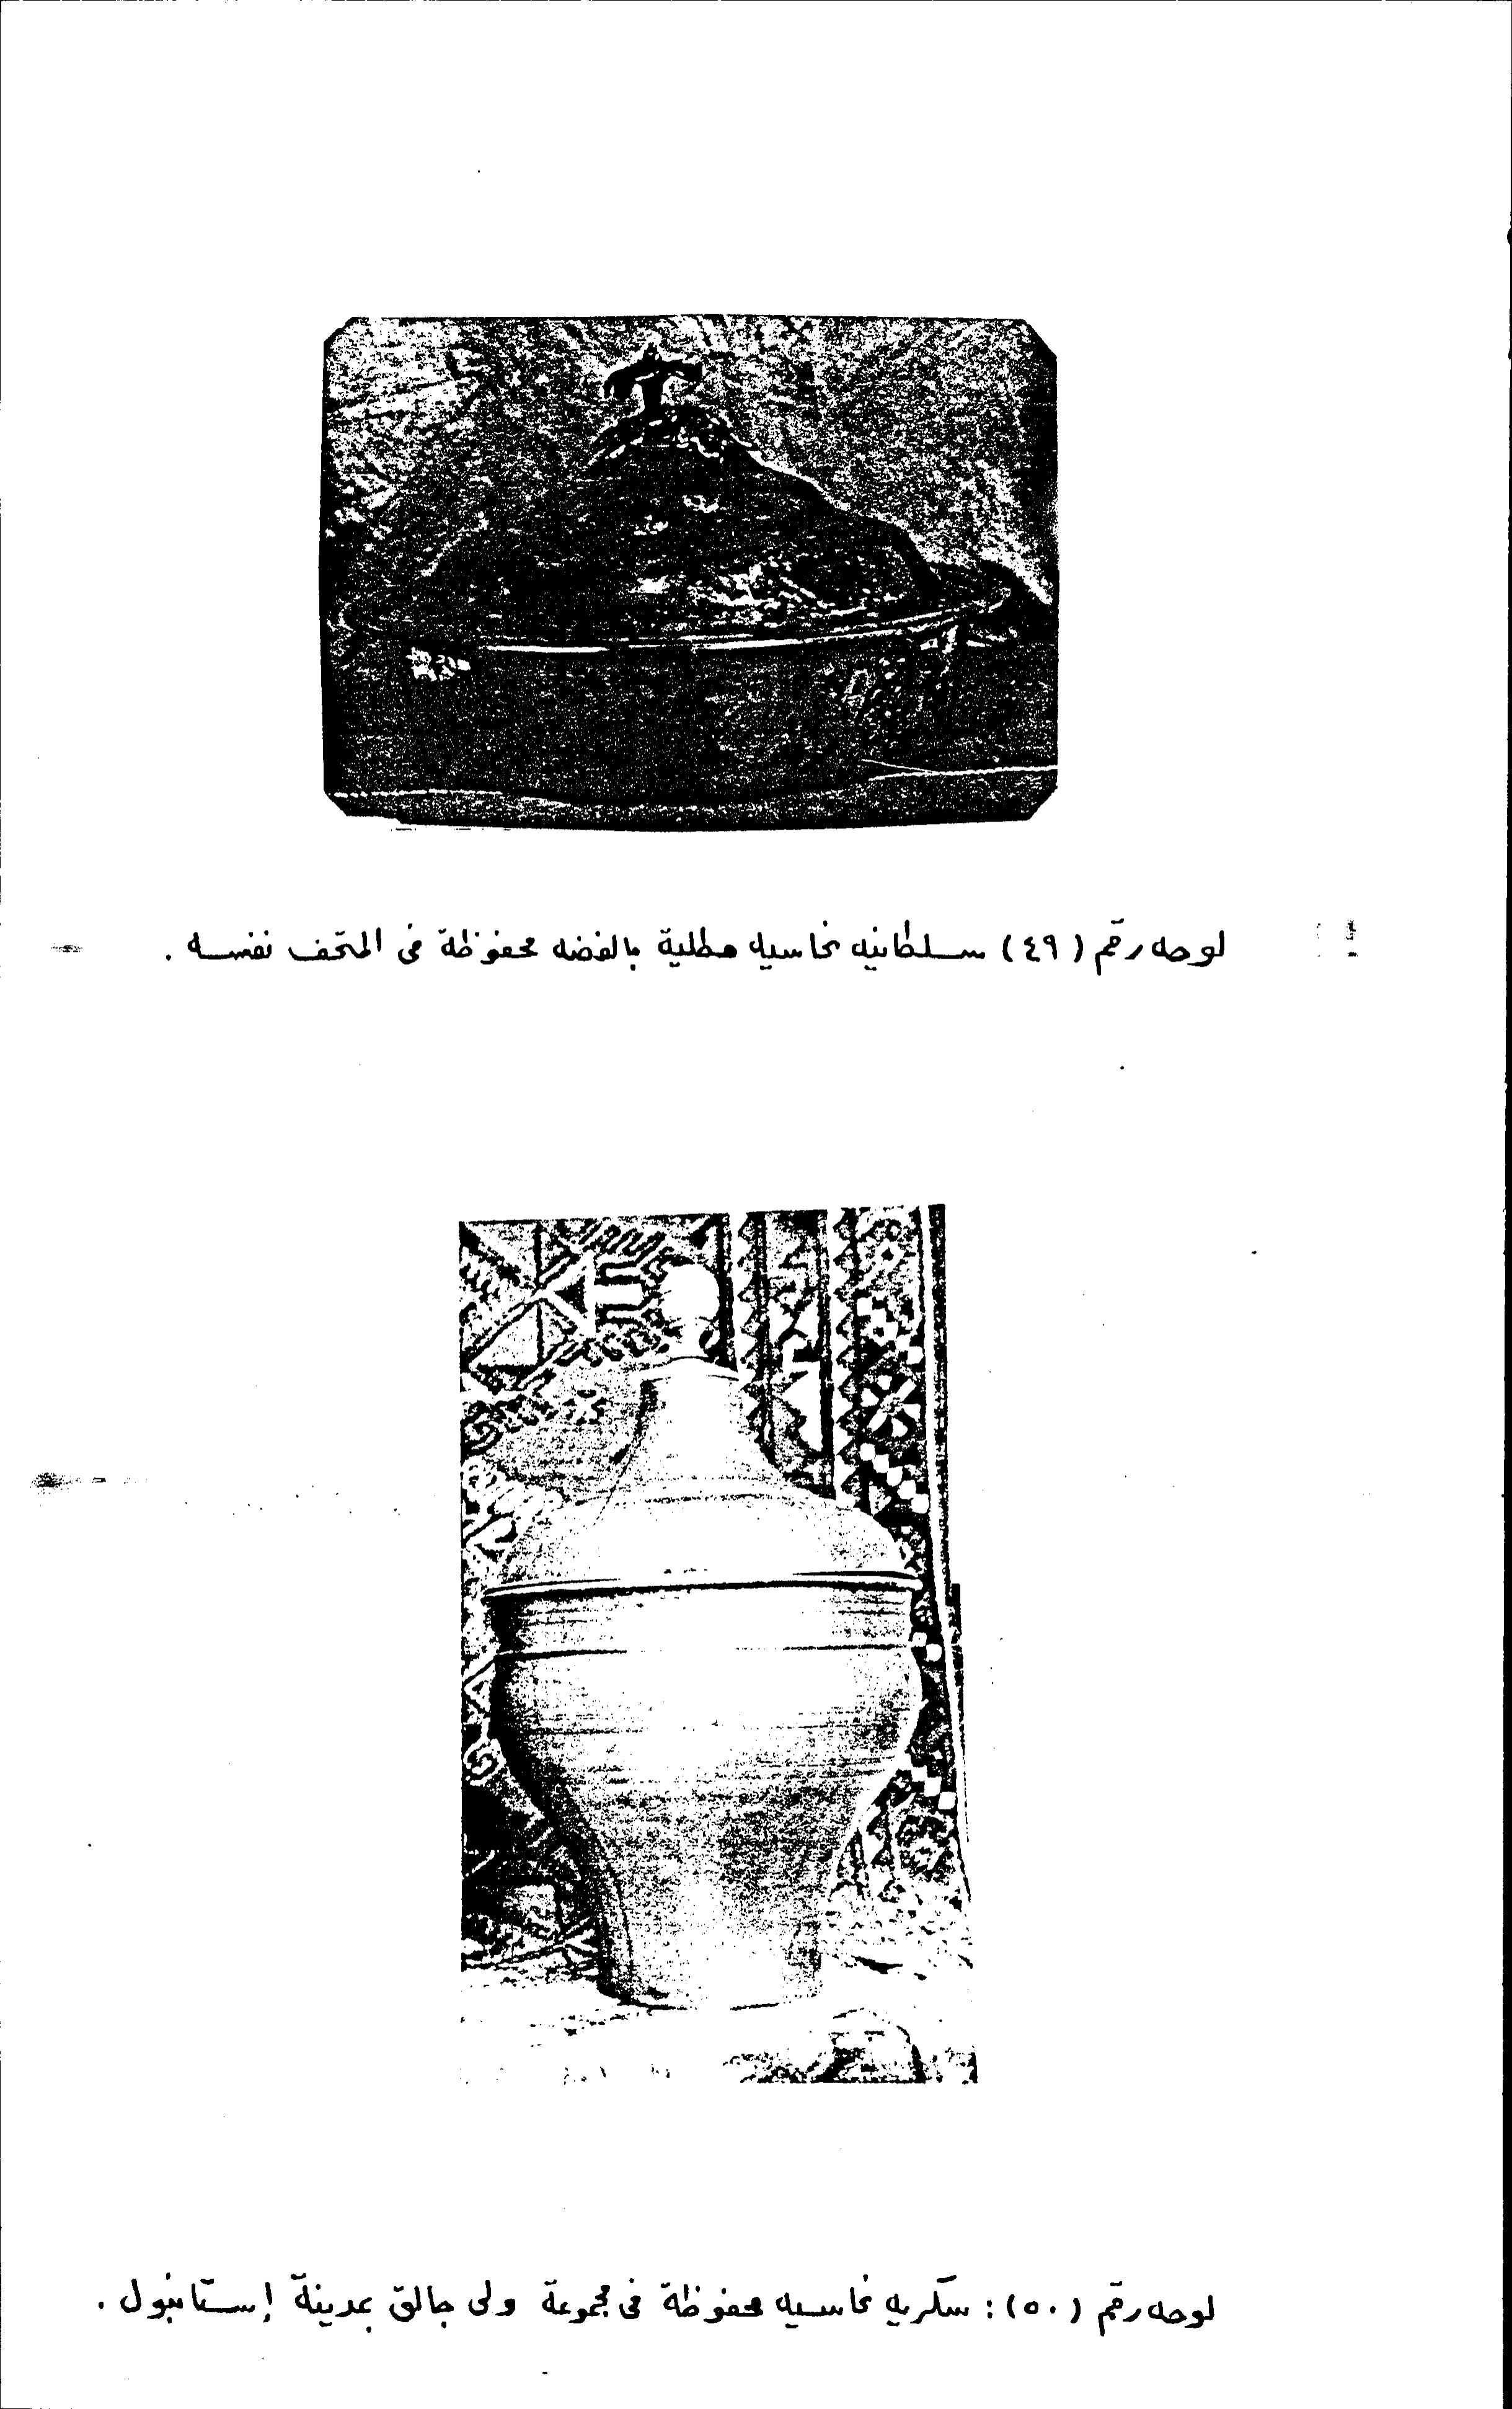 لوحه رقم (٤٩) سلطانيه نحاسيه مطلية بالفضه محفوظة فى المتحف نفسه .
لوحه رقم (٥٠) : سكريه نحاسيه محفوظة فى مجموعة ولى جالق بمدينة إستانبول .